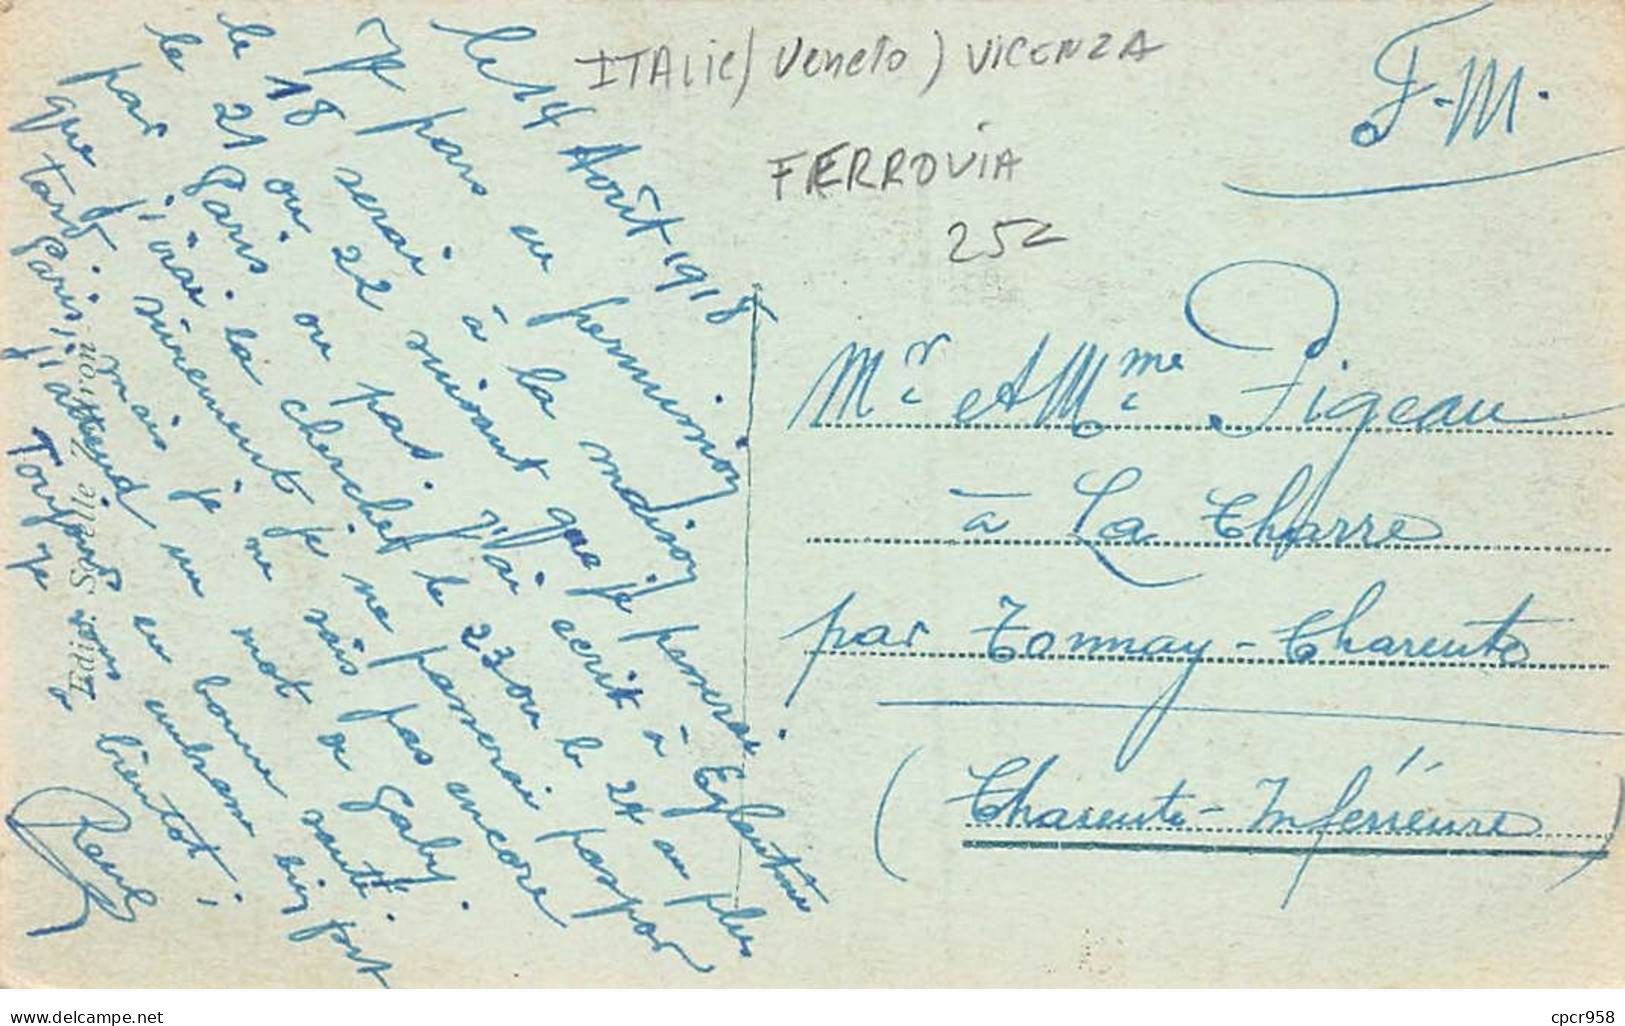 ITALIE / Veneto ) VICENZA
FERROVIA
252
F.M.
le 14 Août 1918
Je pars en permission
le 18 serai à la maison
le 21 ou 22 suivant que je passerai
par Paris ou pas. J'ai écrit à Eglantine
que j'irai la chercher le 23 ou le 24 au plus
tard. sûrement je ne passerai pas par
Paris, mais je ne sais pas encore
j'attend un mot de Gaby.
Toujours en bonne santé.
Je vous embrasse bien fort
à bientôt.
Edit. Sorelle
Mr et Mme Pigeau
à La Charre
par Tonnay-Charente
(Charente-Inférieure)
www.delcampe.net
cpcr958